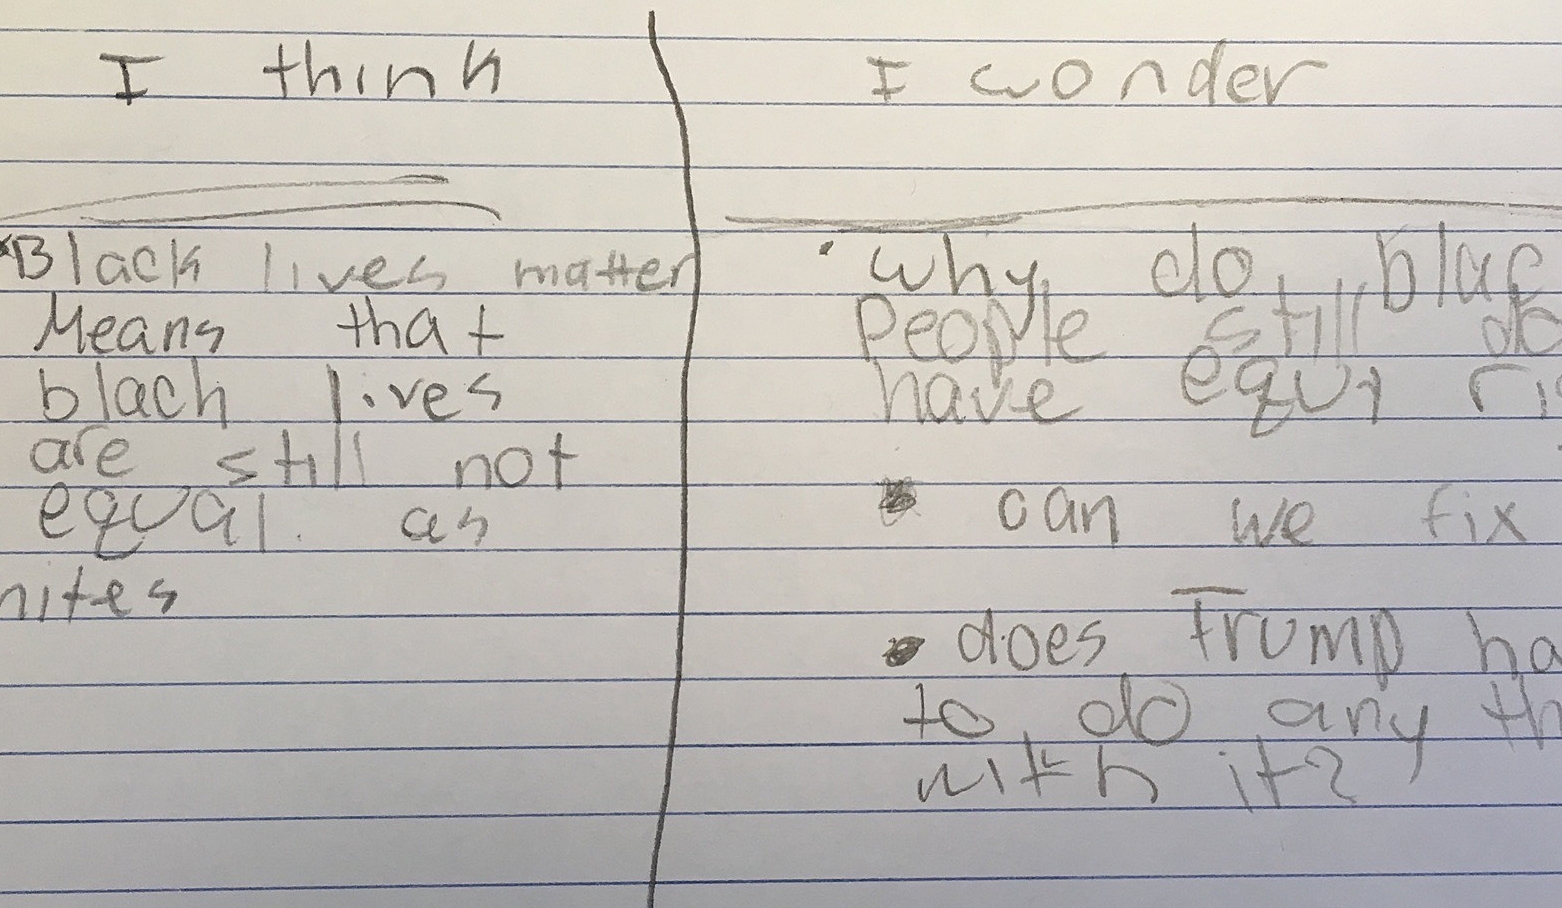 I think
Black lives matter
Means that
blach lives
are still not
equal. as
hites
I wonder
· Why do blac
People still do
have equy ri
• can we fix
• does Trump ha
to do any th
with it?